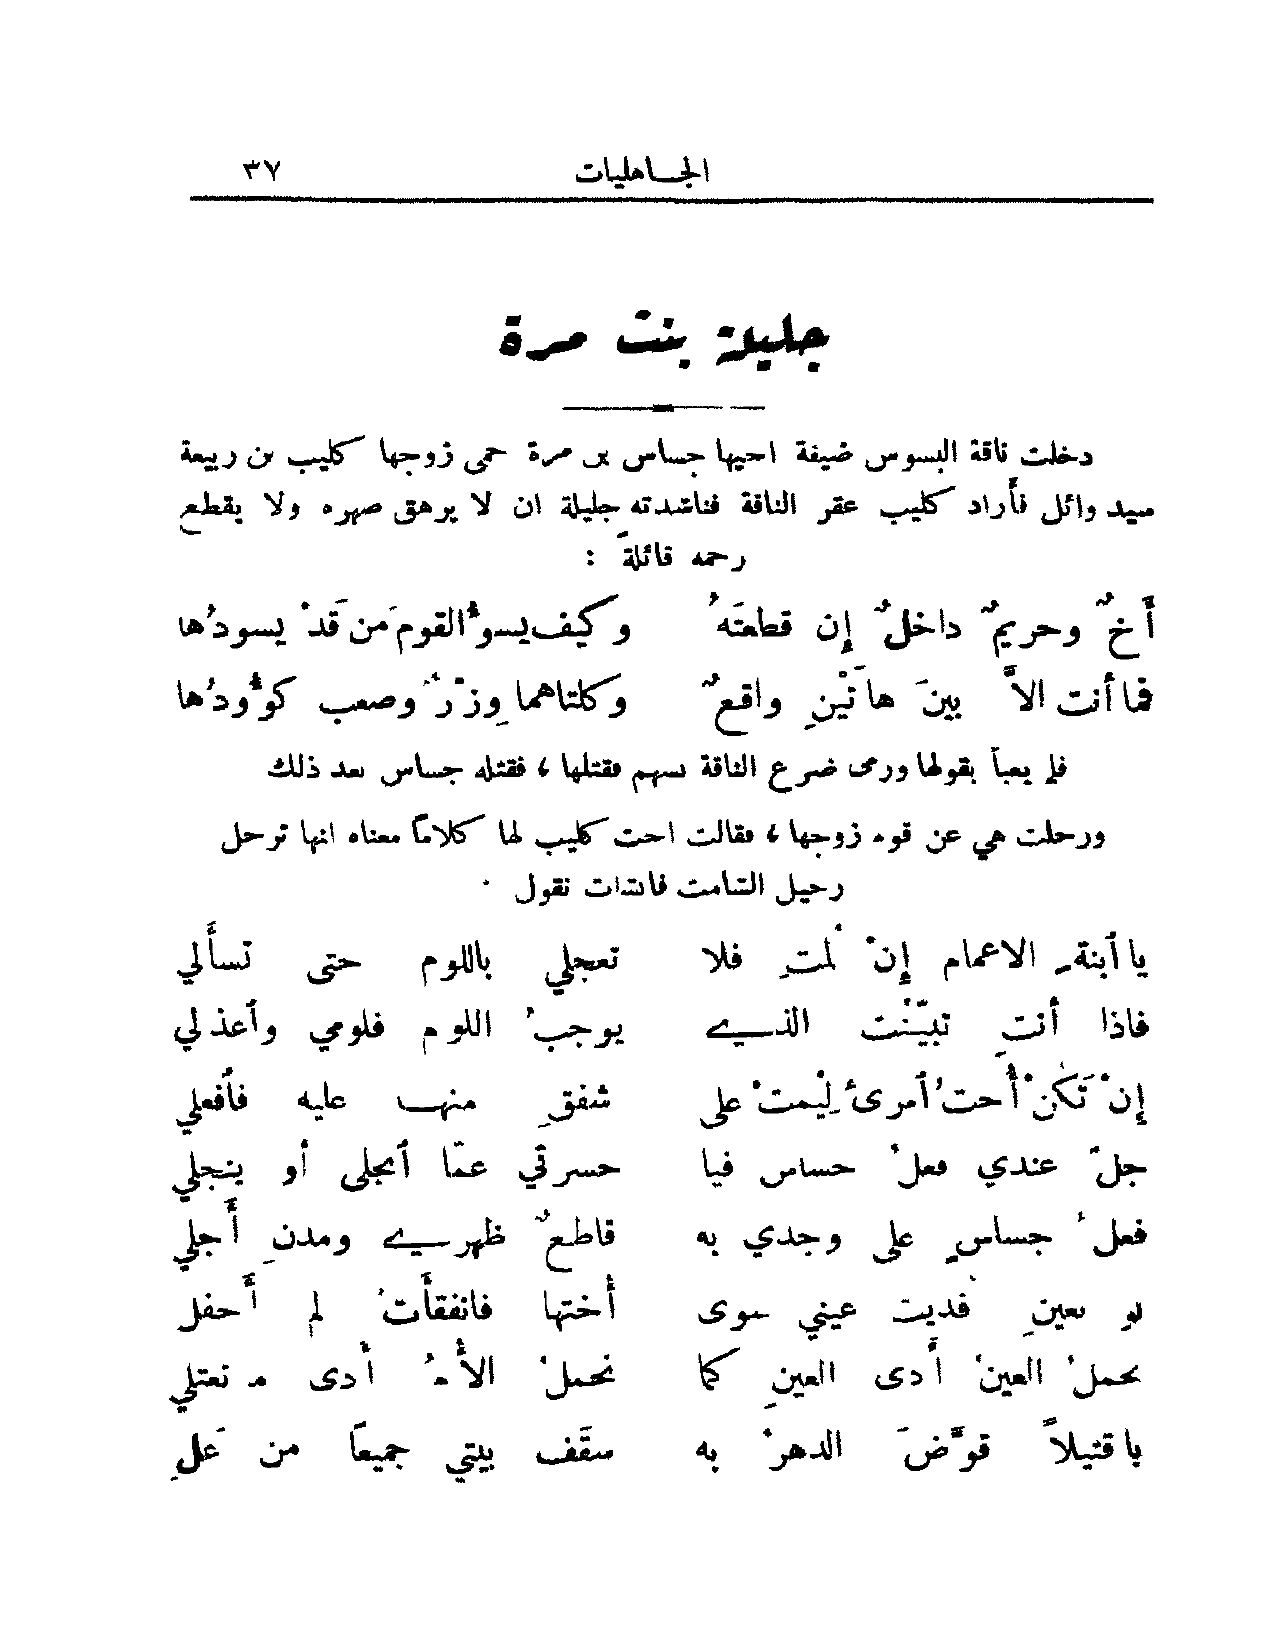 الجاهليات ٣٧
جليلة بنت مرة
دخلت ناقة البسوس ضيفة اخيها جساس بن مرة حمى زوجها كليب بن ربيعة
سيد وائل فأراد كليب عقر الناقة فناشدته جليلة ان لا يرهق صهره ولا يقطع
رحمه قائلةً :
أَخٌ وحريمٌ داخلٌ إن قطعتَهُ وكيف يسوءُ القومَ مَن قَدْ يسودُها
فما أنت الاَّ بينَ هاتَيْنِ واقعٌ وكلتاهما وِزْرٌ وصعب كؤُودُها
فلم يعبأ بقولها ورمى ضرع الناقة بسهم فقتلها ، فقتله جساس بعد ذلك
ورحلت هي عن قوم زوجها ، فقالت اخت كليب لها كلاماً معناه انها ترحل
رحيل الشامت فانشات تقول
يا أبنةَ الاعمام إنْ لُمتِ فلا تعجلي باللوم حتى تسأَلي
فاذا أنتِ تبيّنْت الذي يوجبُ اللوم فلومي وأعذلي
إنْ تَكُنْ أُختُ أمرئٍ لِيْمتْ على شفقٍ منها عليه فأفعلي
جلّ عندي فعلُ جساس فيا حسرتي عمّا أنجلى أو ينجلي
فعلُ جساسٍ على وجدي به قاطعٌ ظهري ومدنِ أَجلي
لو بعينٍ فديت عيني سوى أُختها فانفقأَتْ لم أَحفل
تحملُ العينُ أَذى العينِ كما تحملُ الأُمُّ أَذى ما تعتلي
يا قتيلاً قوَّضَ الدهرُ به سقَف بيتي جميعاً من عَلِ